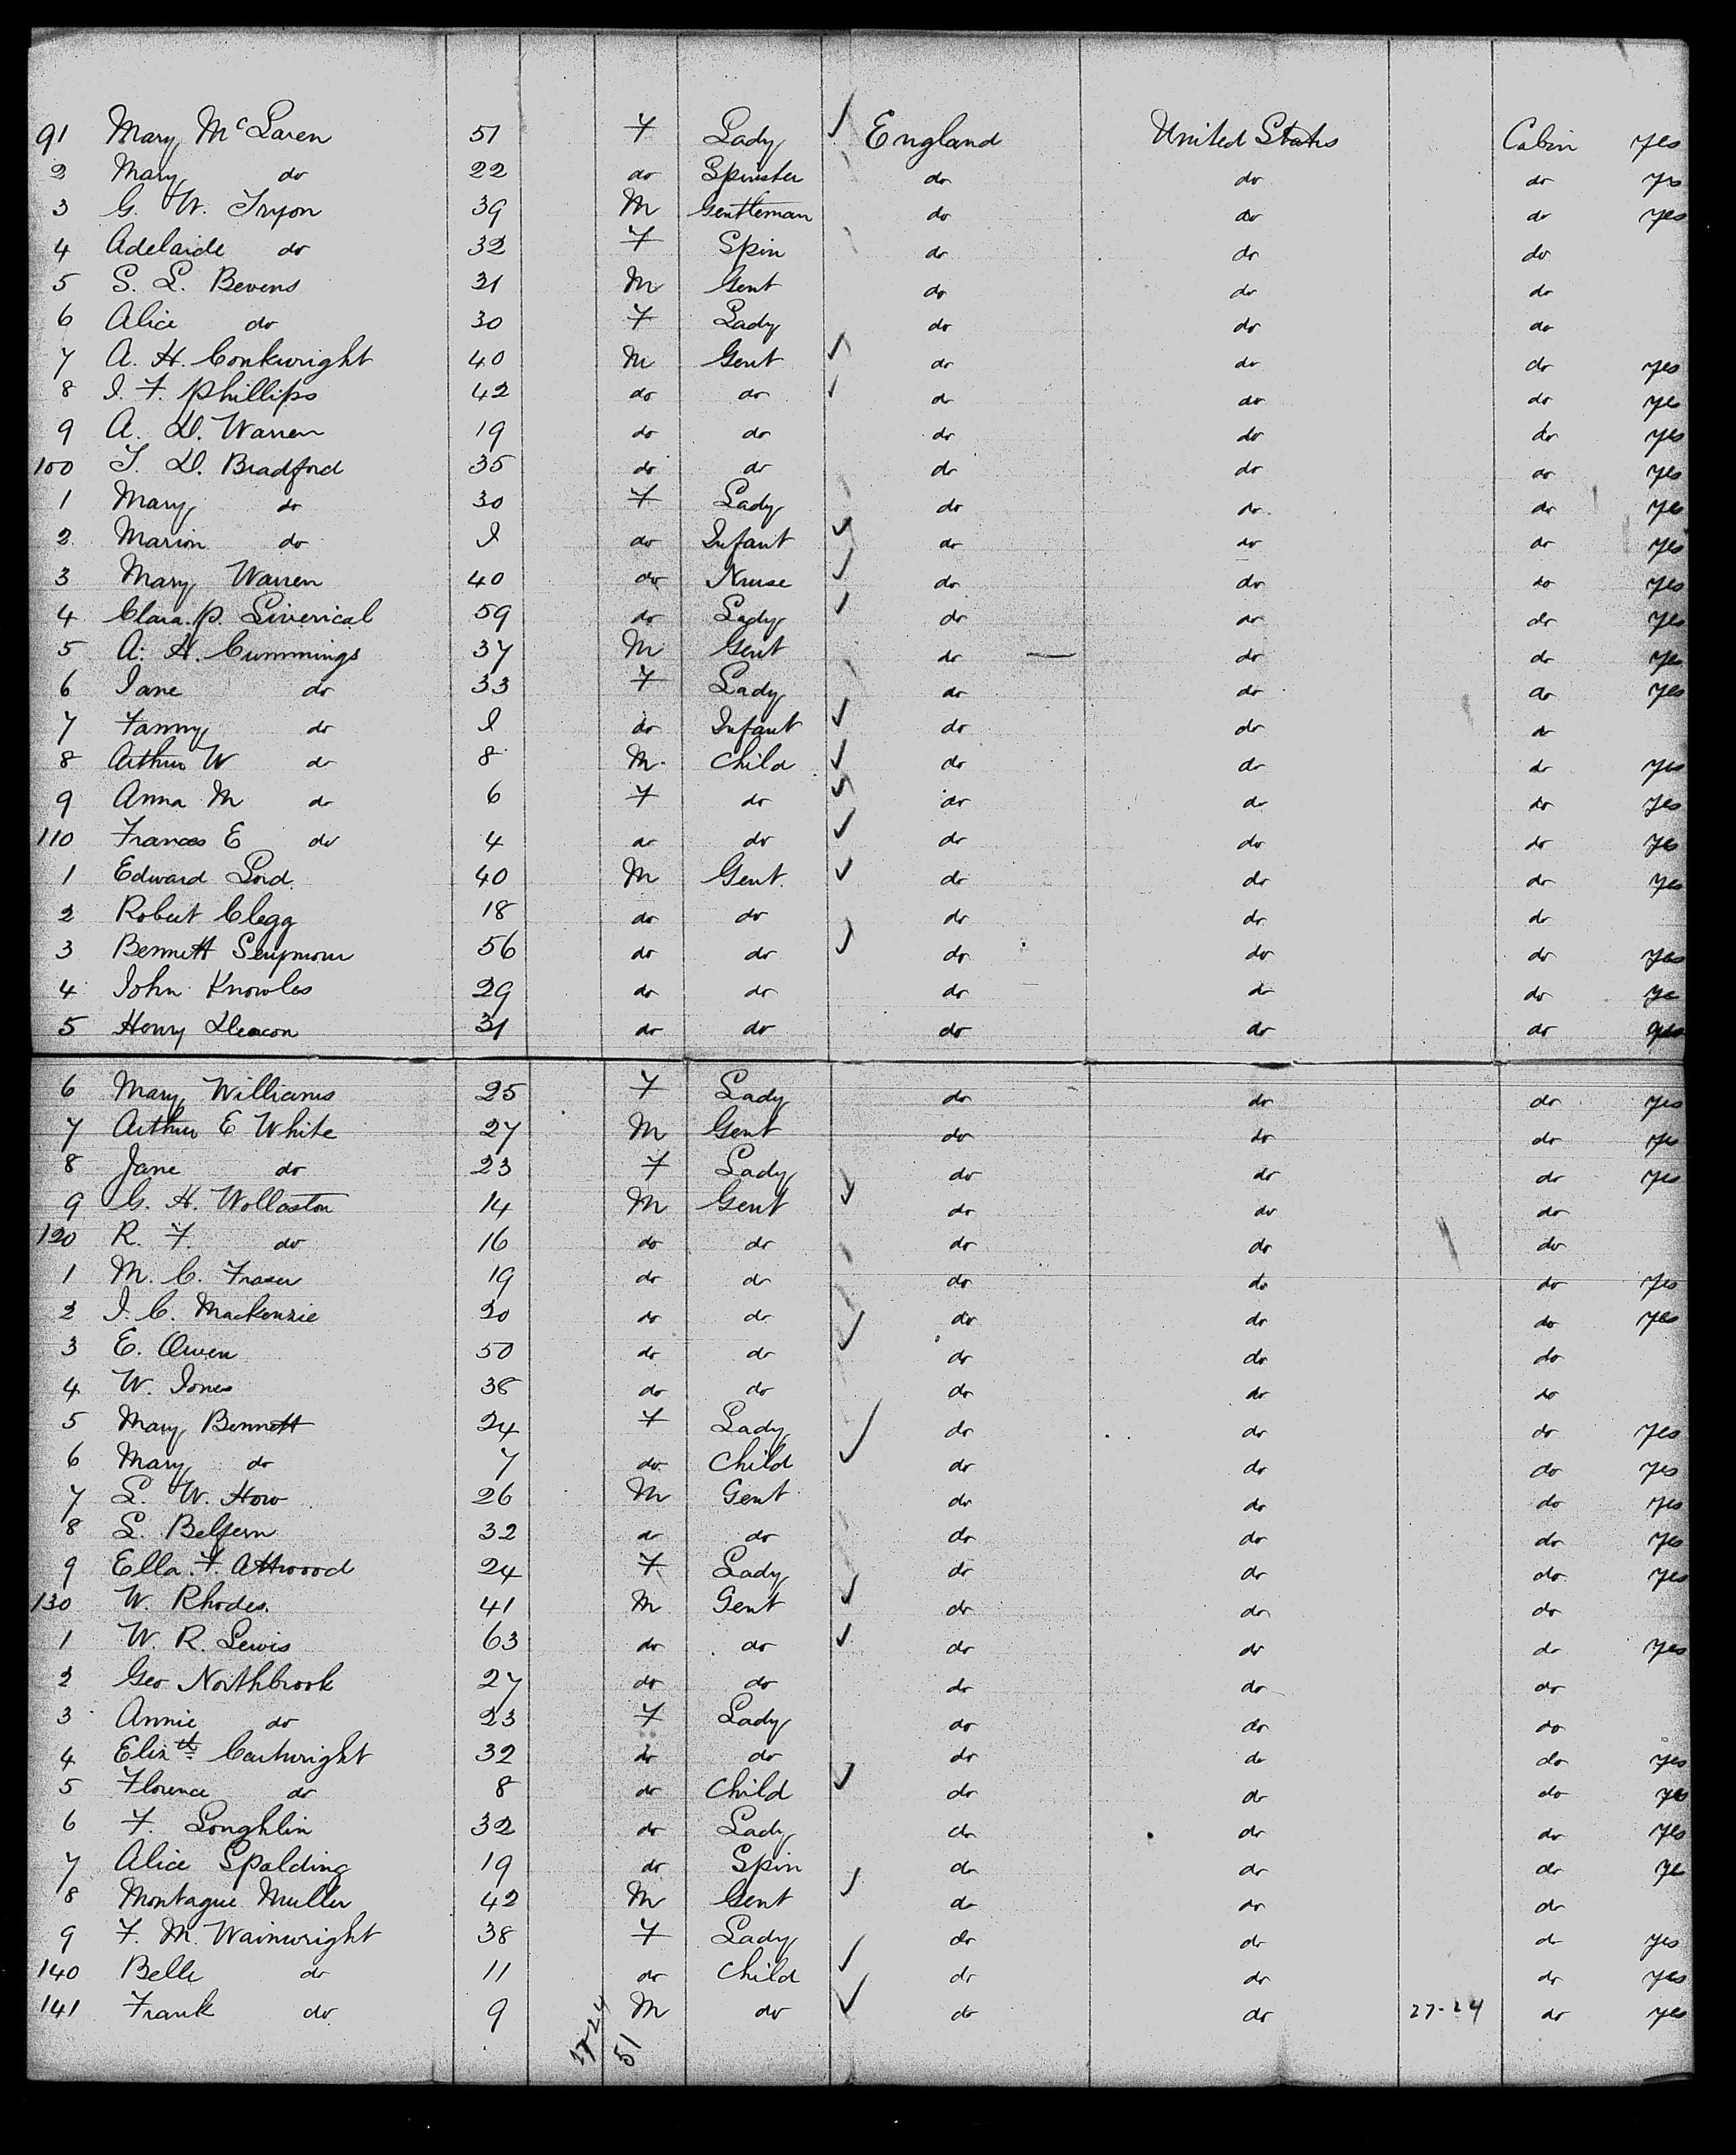 91 Mary McLaren 51 F Lady England United States Cabin yes
2 Mary do 22 do Spinster do do do yes
3 G. W. Tryon 39 M Gentleman do do do yes
4 Adelaide do 32 F Spin do do do
5 S. L. Bevens 31 M Gent do do do
6 Alice do 30 F Lady do do do
7 A. H. Conkwright 40 M Gent do do do yes
8 I. F. Phillips 42 do do do do do yes
9 A. D. Warren 19 do do do do do yes
100 T. D. Bradford 35 do do do do do yes
1 Mary do 30 F Lady do do do yes
2 Marion do I do Infant do do do yes
3 Mary Warren 40 do Nurse do do do yes
4 Clara. P. 59 do Lady do do do yes
5 A. H. Cummings 37 M Gent do do do yes
6 Jane do 33 F Lady do do do yes
7 Fanny do I do Infant do do do
8 Arthur W do 8 M Child do do do yes
9 Anna M do 6 F do do do do yes
110 Frances E do 4 do do do do do yes
1 Edward Lord 40 M Gent. do do do yes
2 Robert Clegg 18 do do do do do
3 Bennett Seymour 56 do do do do do yes
4 John Knowles 29 do do do do do ye
5 Henry Deacon 31 do do do do do yes
6 Mary Williams 25 F Lady do do do yes
7 Arthur E White 27 M Gent do do do yes
8 Jane do 23 F Lady do do do yes
9 G. H. Wollaston 14 M Gent do do do
120 R. F. do 16 do do do do do
1 M. C. Fraser 19 do do do do do yes
2 I. C. Mackenzie 20 do do do do do yes
3 E. Owen 50 do do do do do
4 W. Jones 38 do do do do do
5 Mary Bennett 24 F Lady do do do yes
6 Mary do 7 do Child do do do yes
7 L. W. How 26 M Gent do do do yes
8 L. Belfern 32 do do do do do yes
9 Ella. F. Attwood 24 F Lady do do do yes
130 W. Rhodes. 41 M Gent do do do
1 W. R. Lewis 63 do do do do do yes
2 Geo Northbrook 27 do do do do do
3 Annie do 23 F Lady do do do
4 Elizth Cartwright 32 do do do do do yes
5 Florence do 8 do Child do do do yes
6 F. Loughlin 32 do Lady do do do yes
7 Alice Spalding 19 do Spin do do do ye
8 Montague Muller 42 M Gent do do do
9 F. M. Wainwright 38 F Lady do do do yes
140 Belle do 11 do Child do do do yes
141 Frank do 9 M do do do 27-24 do yes
51